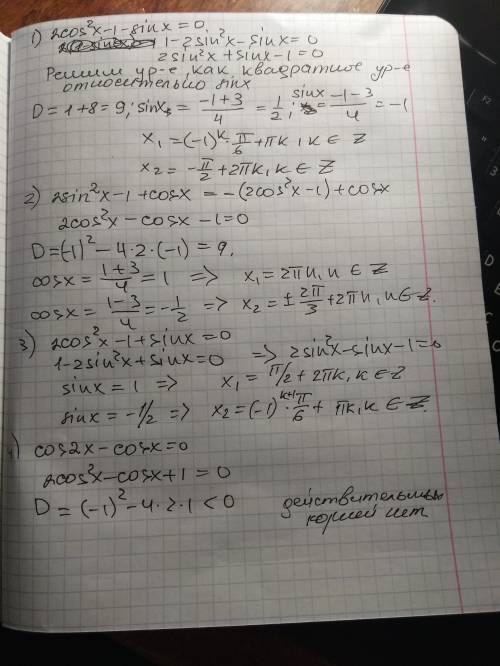 1) 2cos²x-1-sinx=0
1-2sin²x-sinx=0
2sin²x+sinx-1=0
Решим ур-е, как квадратное ур-е
относительно sinx
D=1+8=9; sinx = (-1+3)/4 = 1/2; sinx = (-1-3)/4 = -1
x₁=(-1)^k · π/6 + πk, k ∈ Z
x₂ = -π/2 + 2πk, k ∈ Z
2) 2sin²x-1+cosx = -(2cos²x-1)+cosx
2cos²x-cosx-1=0
D=(-1)²-4·2·(-1)=9.
cosx = (1+3)/4 = 1 => x₁=2πn, n ∈ Z
cosx = (1-3)/4 = -1/2 => x₂ = ± 2π/3 + 2πn, n ∈ Z.
3) 2cos²x-1+sinx=0
1-2sin²x+sinx=0 => 2sin²x-sinx-1=0
sinx=1 => x₁ = π/2 + 2πk, k ∈ Z
sinx=-1/2 => x₂=(-1)^(k+1) · π/6 + πk, k ∈ Z.
cos2x-cosx=0
2cos²x-cosx+1=0
D=(-1)²-4·2·1<0 действительных
корней нет